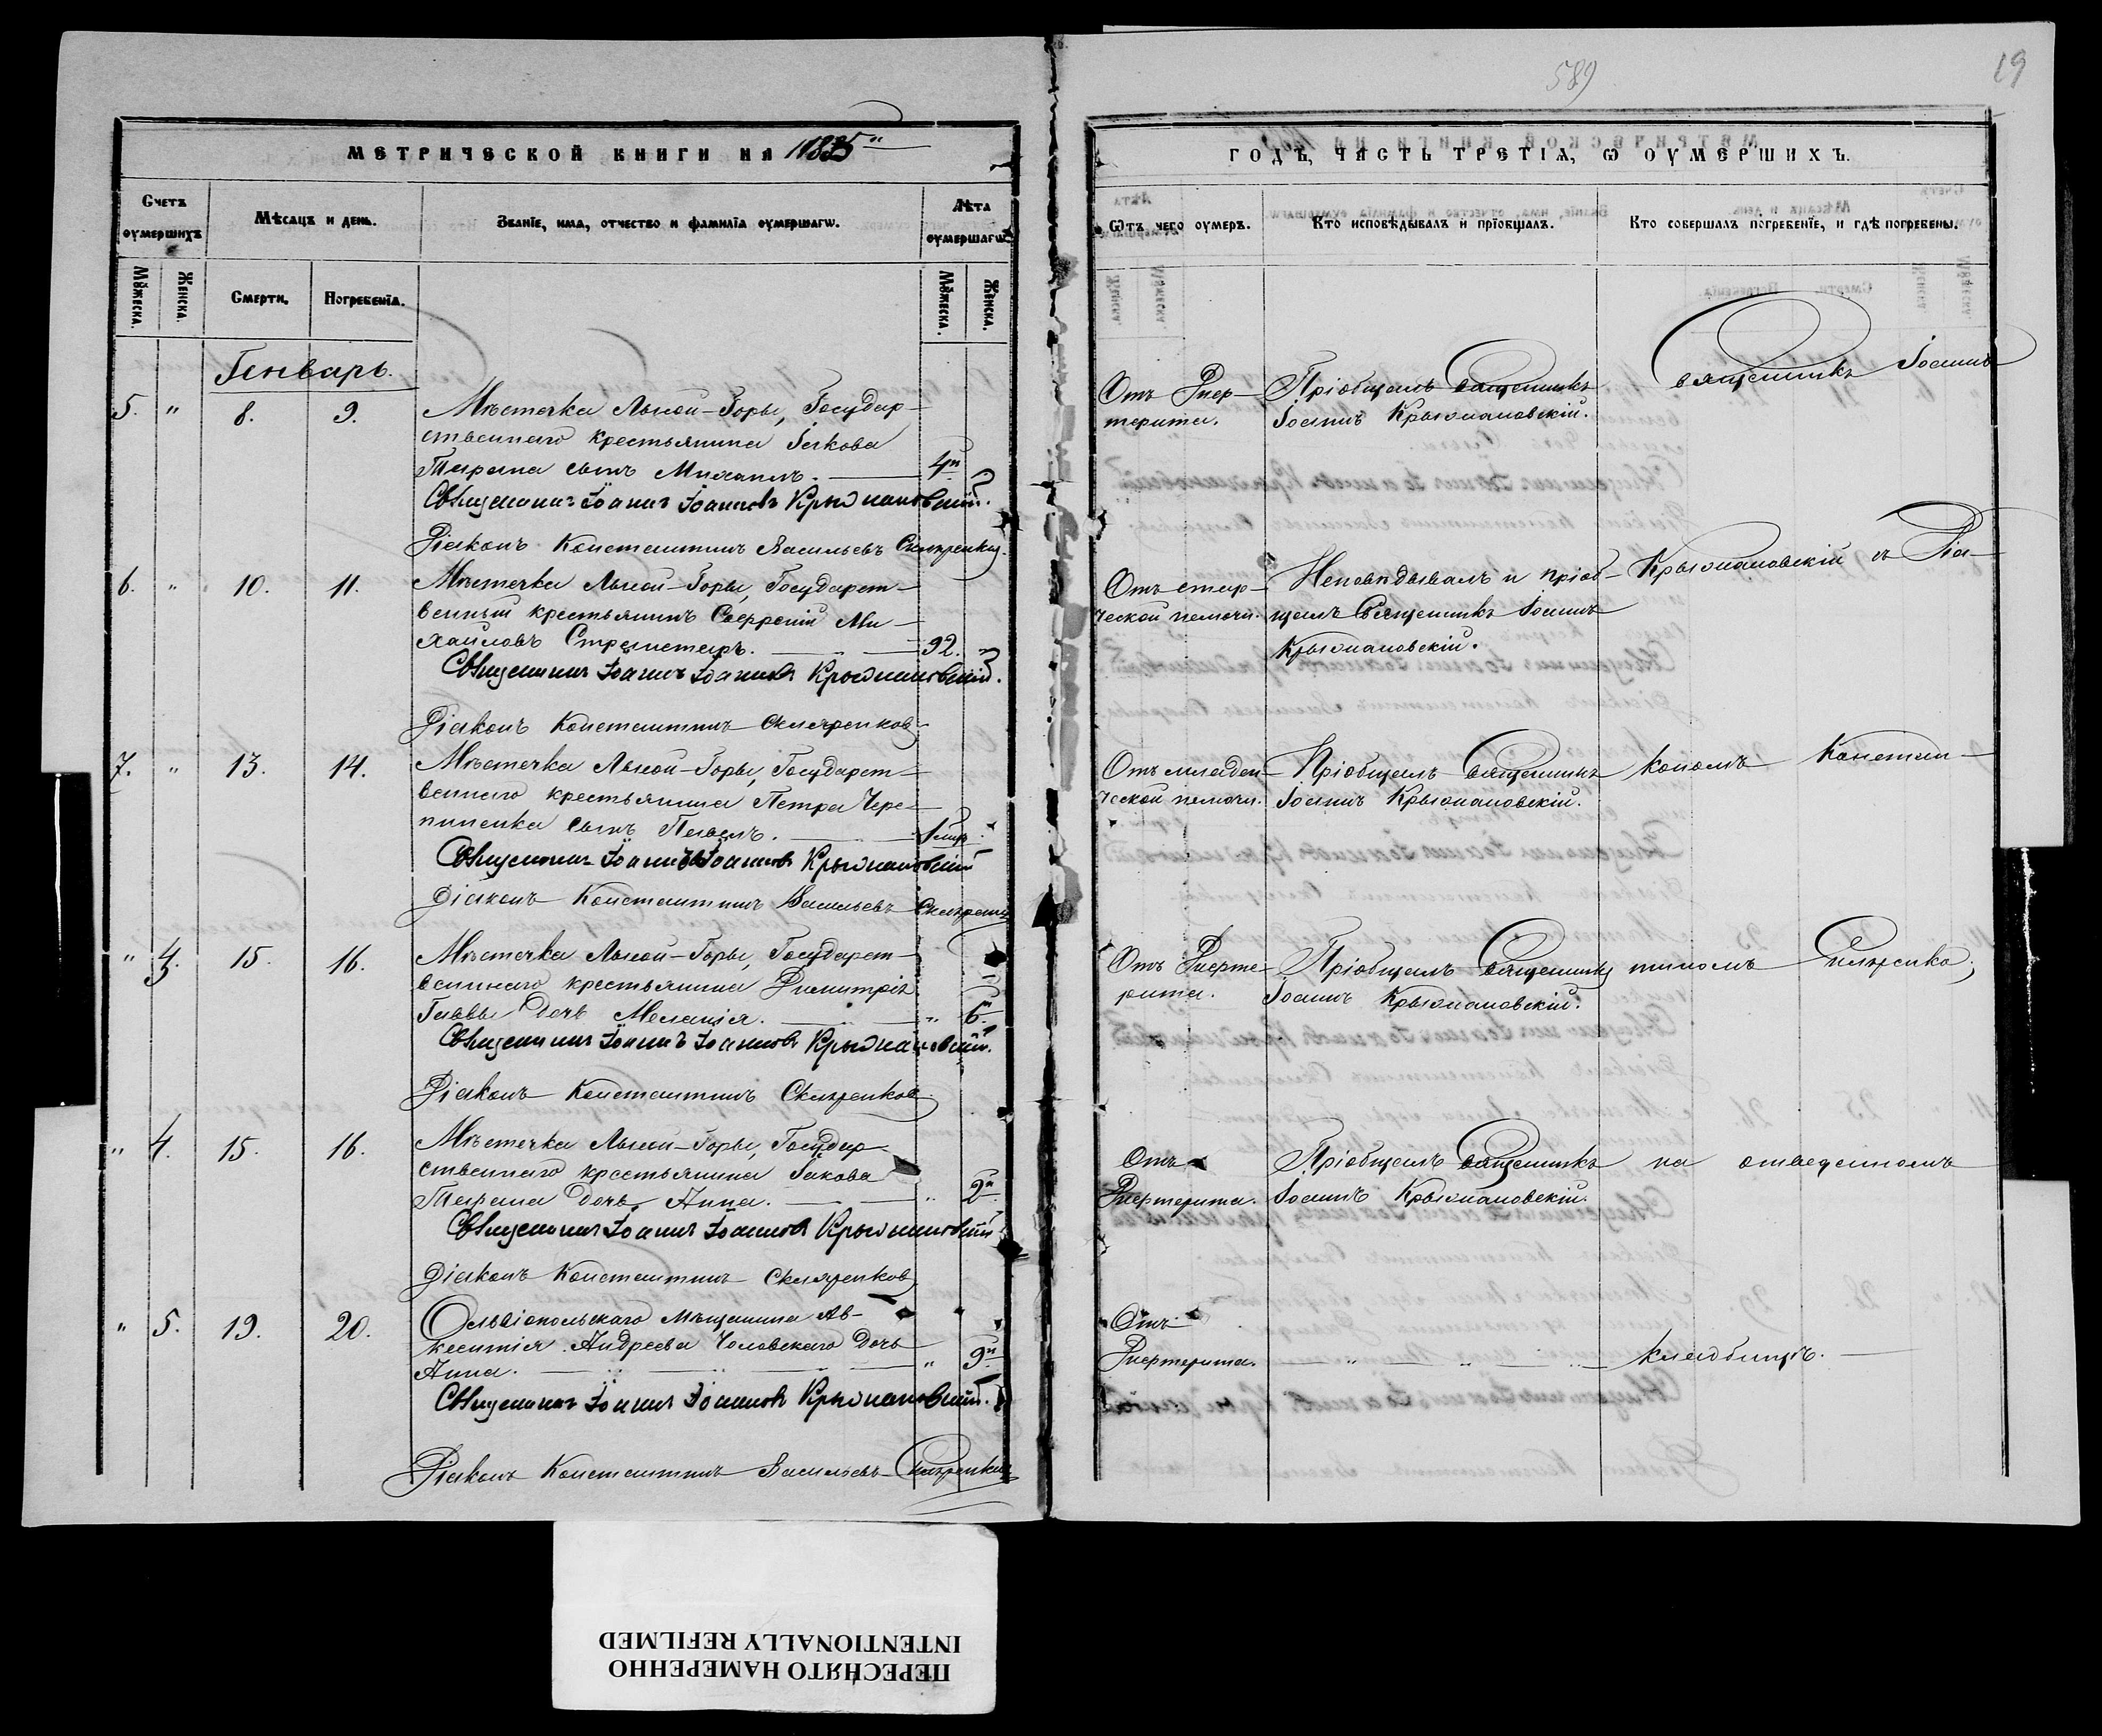 589
19
МЕТРИЧЕСКОЙ КНИГИ НА 1885й
ГОДЪ, ЧАСТЬ ТРЕТІѦ, Ѡ ОУМЕРШИХЪ.
Счетъ оумершихъ
Мѣсацъ и день.
Званїе, има, отчество и фамилїа оумершагѡ.
Лѣта оумершагѡ
Мꙋжеска.
Женска.
Смерти.
Погребенїа.
Мꙋжеска.
Женска.
Ѿтъ чего оумеръ.
Кто исповѣдывалъ и прїобщалъ.
Кто совершалъ погребенїе, и гдѣ погребены.
Генварь.
5. " 8. 9. Мѣстечка Лысой-Горы, Государ-
ственнаго крестьянина Іакова
Тарана сынъ Михаилъ. 4н
Священникъ Іоаннъ Іоанновъ Крыжановскій.
Діаконъ Константинъ Васильевъ Скляренко.
Отъ Диф-
терита.
Пріобщалъ Священникъ
Іоаннъ Крыжановскій.
Священникъ Іоаннъ
6. " 10. 11. Мѣстечка Лысой-Горы, Государст-
венный крестьянинъ Сергій Ми-
хайловъ 92. "
Священникъ Іоаннъ Іоанновъ Крыжановскій.
Діаконъ Константинъ Скляренков
Отъ стар-
ческой немочи.
Исповѣдывалъ и пріоб-
щалъ Священникъ Іоаннъ
Крыжановскій.
Крыжановскій съ Діа-
7. " 13. 14. Мѣстечка Лысой-Горы, Государст-
веннаго крестьянина Петра Чере-
пиненка сынъ Павелъ.
Священникъ Іоаннъ Іоанновъ Крыжановскій
Діаконъ Константинъ Васильевъ Скляренко
Отъ младен-
ческой немочи.
Пріобщалъ Священникъ
Іоаннъ Крыжановскій.
кономъ Констан-
" 3. 15. 16. Мѣстечка Лысой-Горы, Государст-
веннаго крестьянина Димитрія
Главы дочь Меланія. " 6н
Священникъ Іоаннъ Іоанновъ Крыжановскій.
Діаконъ Константинъ Скляренков
Отъ Дифте-
рита.
Пріобщалъ Священникъ
Іоаннъ Крыжановскій.
тиномъ Скляренко,
" 4. 15. 16. Мѣстечка Лысой-Горы, Государ-
ственнаго крестьянина Іакова
Тарана дочь Анна. " 2н
Священникъ Іоаннъ Іоанновъ Крыжановскій
Діаконъ Константинъ Скляренков
Отъ
Дифтерита.
Пріобщалъ Священникъ
Іоаннъ Крыжановскій.
на отведенномъ
" 5. 19. 20. Ольвіопольскаго мѣщанина Ав-
ксентія Андреева Чоловскаго дочь
Анна. " 9н
Священникъ Іоаннъ Іоанновъ Крыжановскій.
Діаконъ Константинъ Васильевъ Скляренко
Отъ
Дифтерита.
кладбищѣ.
ПЕРЕСНЯТО НАМЕРЕННО
INTENTIONALLY REFILMED